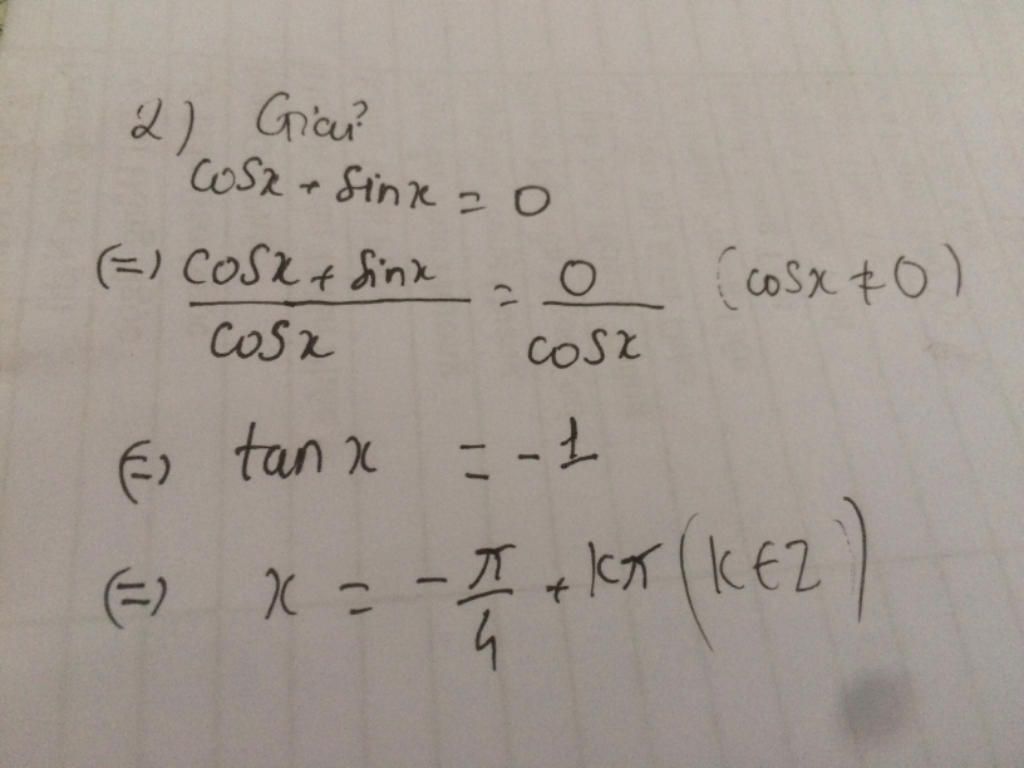 2) Giải
cosx + sinx = 0
(=) cosx + sinx / cosx = 0 / cosx (cosx ≠ 0)
(=) tan x = -1
(=) x = -π/4 + kπ (k∈Z)